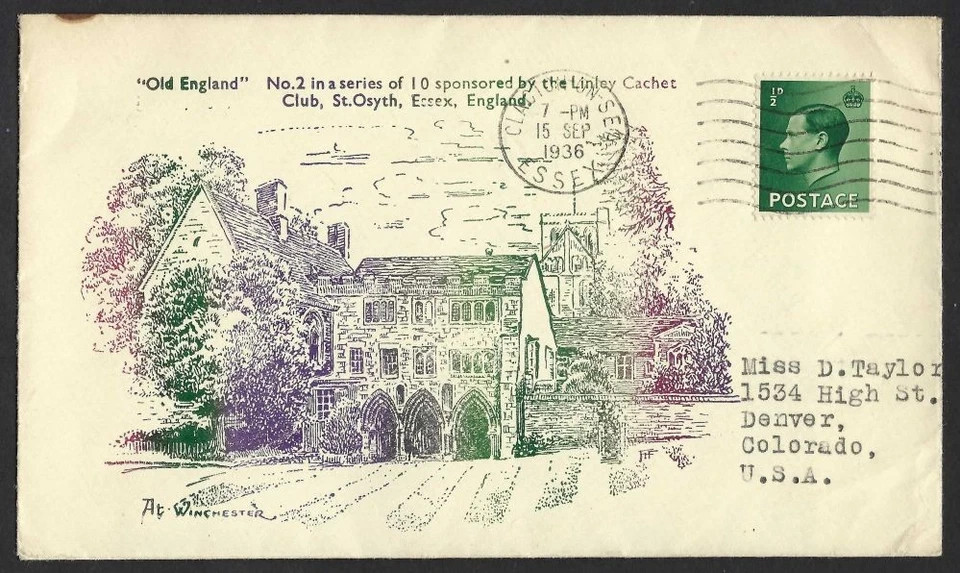 "Old England" No.2 in a series of 10 sponsored by the Linley Cachet
Club, St.Osyth, Essex, England.
CLACTON ON SEA
7 -PM
15 SEP
1936
ESSEX
½D
POSTAGE
Miss D.Taylor
1534 High St.
Denver,
Colorado,
U.S.A.
At WINCHESTER